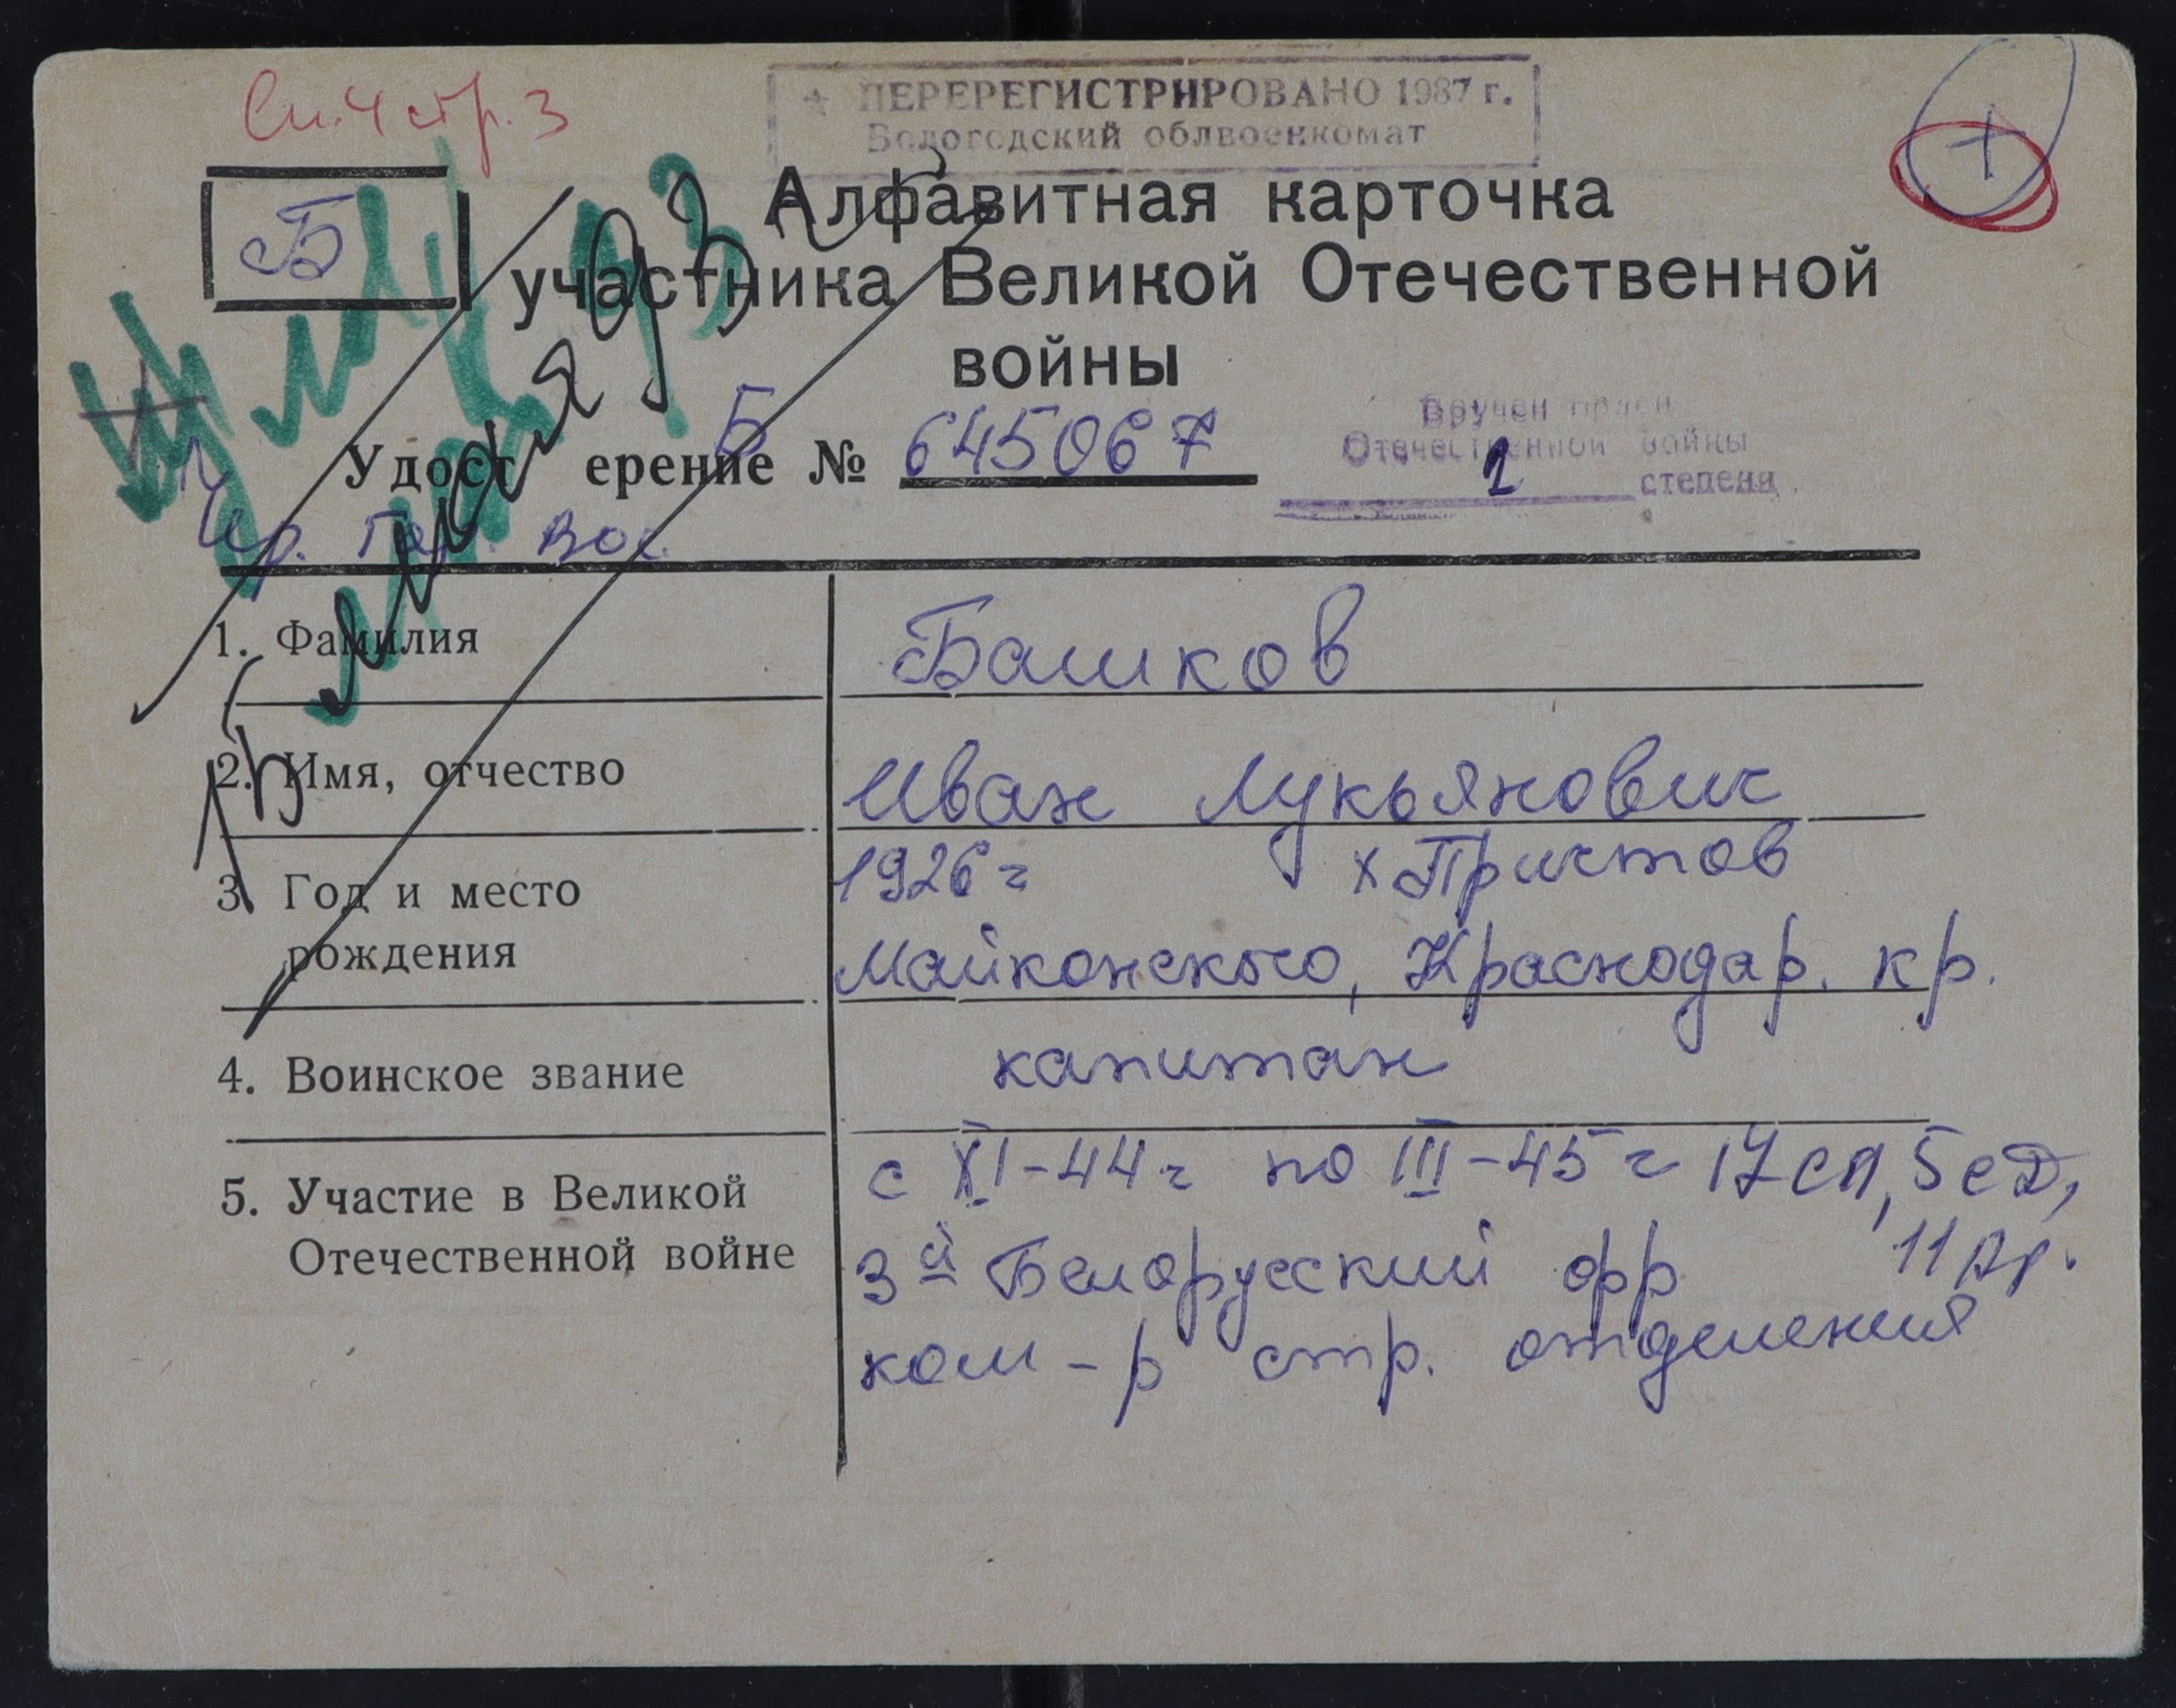 Сп. 4 стр. 3
ПЕРЕРЕГИСТРИРОВАНО 1987 г.
Вологодский облвоенкомат
+
Б
Алфавитная карточка
участника Великой Отечественной
войны
Удостерение № Б 645067
Вручен орден
Отечественной войны
2 степени
1. Фамилия
Башков
2. Имя, отчество
Иван Лукьянович
3. Год и место
рождения
1926 г х Приктов
Майконского, Краснодар. кр.
4. Воинское звание
капитан
5. Участие в Великой
Отечественной войне
с XI-44 г по III-45 г 17 сп, 5 сд,
3й Белорусский фр
ком-р стр. отделения